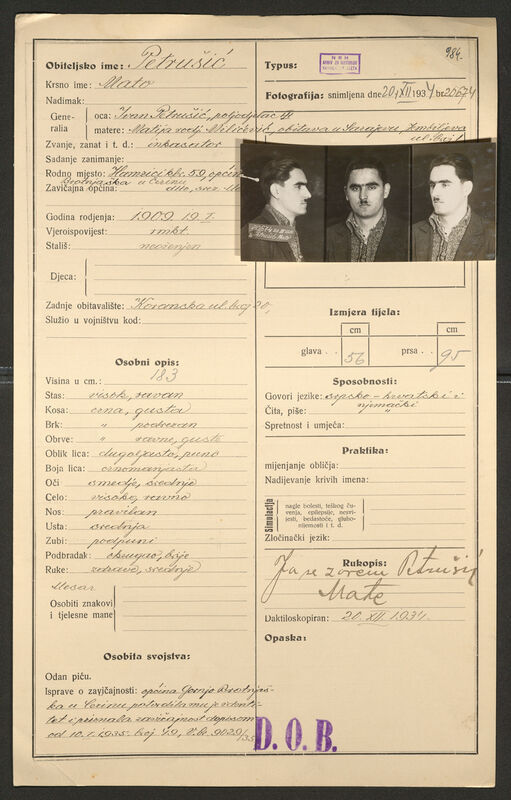 984.
Obiteljsko ime: Petrušić
Krsno ime: Mato
Nadimak:
Generalia
oca: Ivan Petrušić, poljodjelac
matere: Matija rodj. Miličević, obitava u Sarajevu
Zvanje, zanat i t. d.: inkasator
Sadanje zanimanje:
Rodno mjesto: Hamzići kbr. 59, općina
Zavičajna općina: u Cerinu, ditto, srez
Godina rodjenja: 1909 19.7.
Vjeroispovijest: rmkt.
Stališ: neoženjen
Djeca:
Zadnje obitavalište: Koranska ul. broj 20,
Služio u vojništvu kod:
Osobni opis:
Visina u cm.: 183
Stas: visok, ravan
Kosa: crna, gusta
Brk: " podrezan
Obrve: " ravne, guste
Oblik lica: dugoljasto, puno
Boja lica: crnomanjasta
Oči smedje, srednje
Čelo: visoko, ravno
Nos: pravilan
Usta: srednja
Zubi: podpuni
Podbradak: okrugao, brije
Ruke: zdrave, srednje
Osobiti znakovi i tjelesne mane
Osobita svojstva:
Odan piću.
Isprave o zavičajnosti: općina Gornjo Brotnjaš-
ka u Cerinu potvrdila mu je identi-
tet i priznala zavičajnost dopisom
od 10.1.1935. broj 49, V. br. 9029/35
Typus:
Fotografija: snimljena dne 20/XII 1934 br. 20674
Izmjera tijela:
cm cm
glava 56 prsa 95
Sposobnosti:
Govori jezike: srpsko-hrvatski i
Čita, piše: " njemački
Spretnost i umjeća:
Praktika:
mijenjanje obličja:
Nadijevanje krivih imena:
Simulacija
nagle bolesti, teškog ču-
venja, epilepsije, nesvi-
jesti, bedastoće, gluho-
nijemosti i t. d.
Zločinački jezik:
Rukopis:
Ja se zovem Petrušić
Mate
Daktiloskopiran: 20. XII. 1934.
Opaska:
D.O.B.